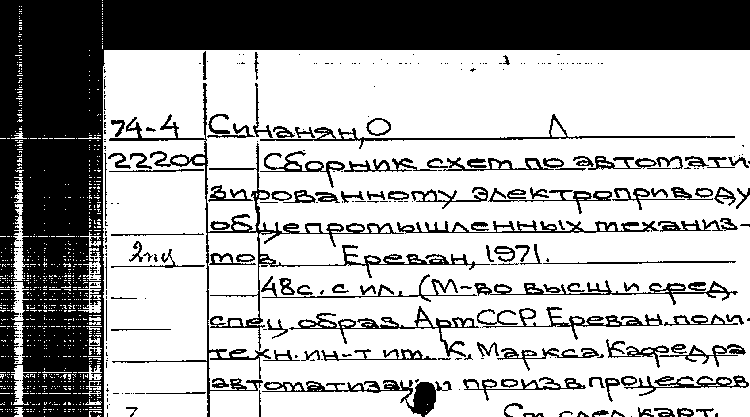 74-4 Синанян, О Л
22200 Сборник схем по автомати-
зированному электроприводу
общепромышленных механиз-
мов. Ереван, 1971.
48с. с ил. (М-во высш. и сред.
спец. образ. АрмССР. Ереван. поли-
техн. ин-т им. К. Маркса. Кафедра
автоматизации произв. процессов
См. след. карт.